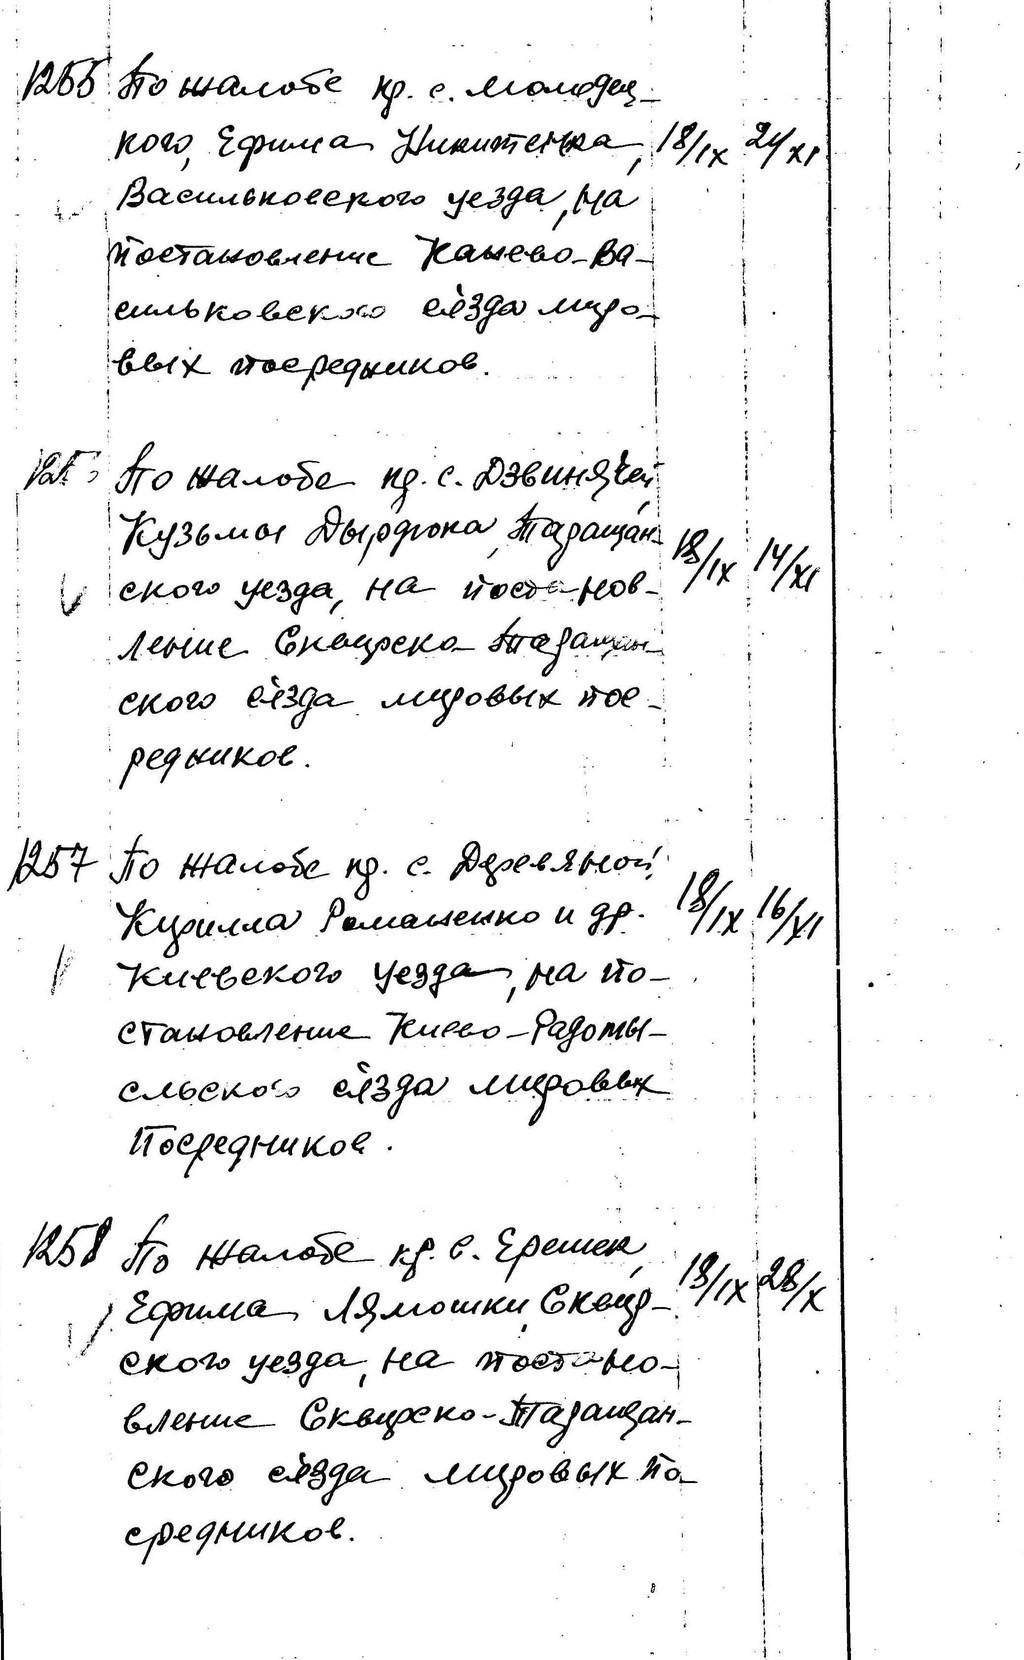 1255 По жалобе кр. с. Молодец-
кого, Ефима Никитенка, 18/IX 24/XI
Васильковского уезда, на
постановление Канево-Ва-
сильковского съезда миро-
вых посредников.
По жалобе кр. с. Дзвинячей
Кузьмы Дырдюка, Таращан- 18/IX 14/XI
ского уезда, на постанов-
ление Сквирско-Таращан-
ского съезда мировых пос-
редников.
1257 По жалобе кр. с. Деревяной,
Кирилла Ромашенко и др. 18/IX 16/XI
Киевского уезда, на по-
становление Киево-Радомы-
сльского съезда мировых
посредников.
1258 По жалобе кр. с. Ерешек,
Ефима Лямошки, Сквир- 18/IX 28/X
ского уезда, на постано-
вление Сквирско-Таращан-
ского съезда мировых по-
средников.